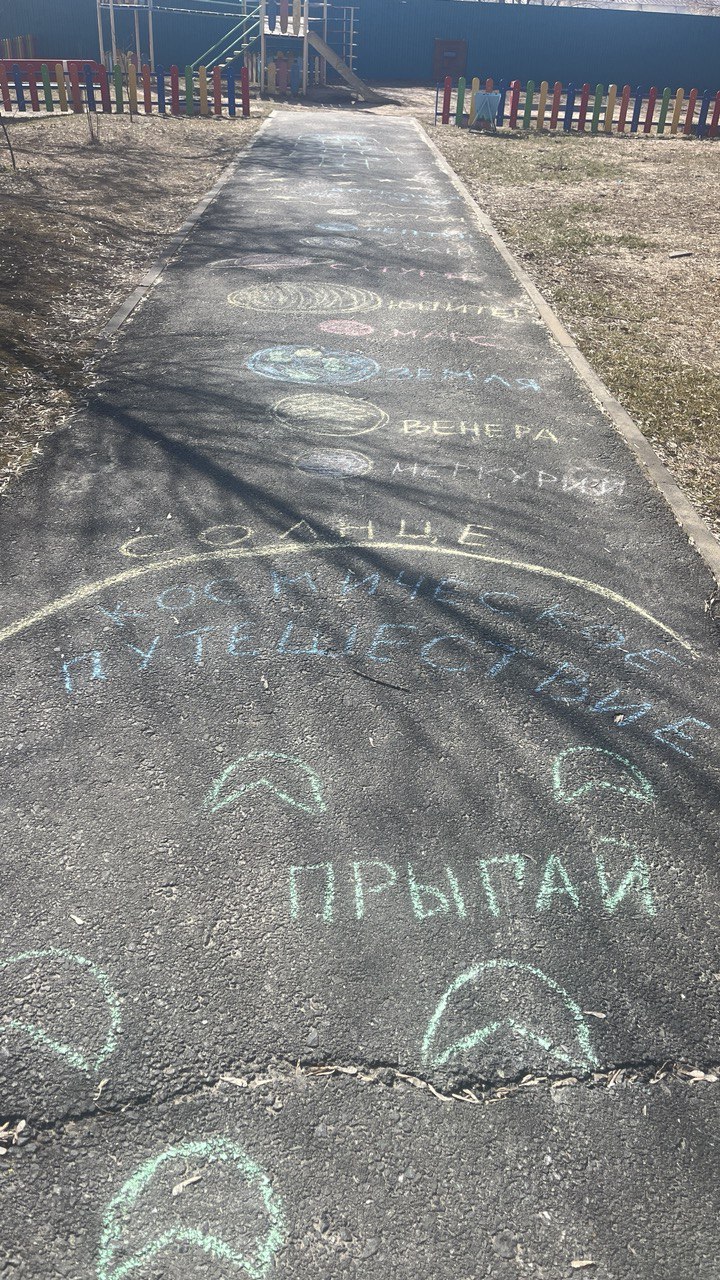 САТУРН
ЮПИТЕР
МАРС
ЗЕМЛЯ
ВЕНЕРА
МЕРКУРИЙ
СОЛНЦЕ
КОСМИЧЕСКОЕ
ПУТЕШЕСТВИЕ
ПРЫГАЙ